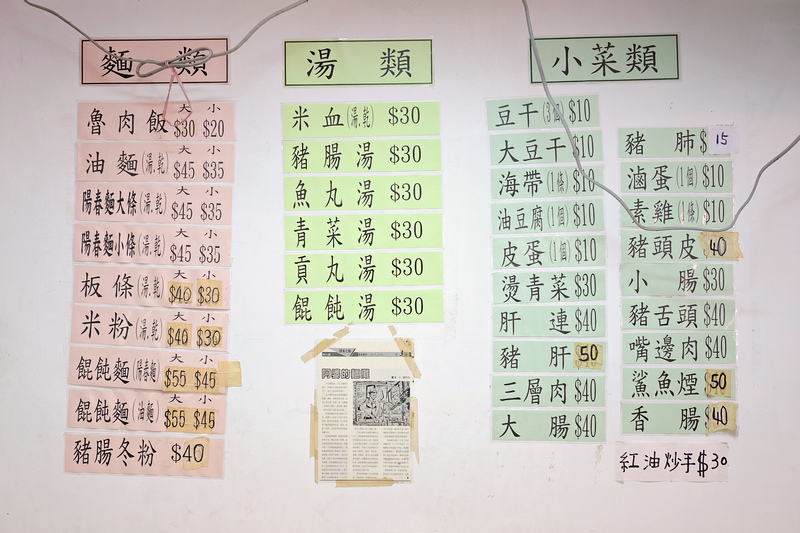 麵 類
魯肉飯 大$30 小$20
油麵(湯.乾) $45 $35
陽春麵大條(湯.乾) $45 $35
陽春麵小條(湯.乾) $45 $35
板條(湯.乾) 大$40 小$30
米粉(湯.乾) 大$40 小$30
餛飩麵(陽春麵) 大$55 小$45
餛飩麵(油麵) 大$55 小$45
豬腸冬粉 $40
湯 類
米血(湯.乾) $30
豬腸湯 $30
魚丸湯 $30
青菜湯 $30
貢丸湯 $30
餛飩湯 $30
阿婆的麵攤
小菜類
豆干(3個)$10
大豆干$10
海帶(1條)$10
油豆腐(1個)$10
皮蛋(1個)$10
燙青菜$30
肝連$40
豬肝50
三層肉$40
大腸$40
豬肺$15
滷蛋(1個)$10
素雞(1條)$10
豬頭皮40
小腸$30
豬舌頭$40
嘴邊肉$40
鯊魚煙50
香腸$40
紅油炒手$30